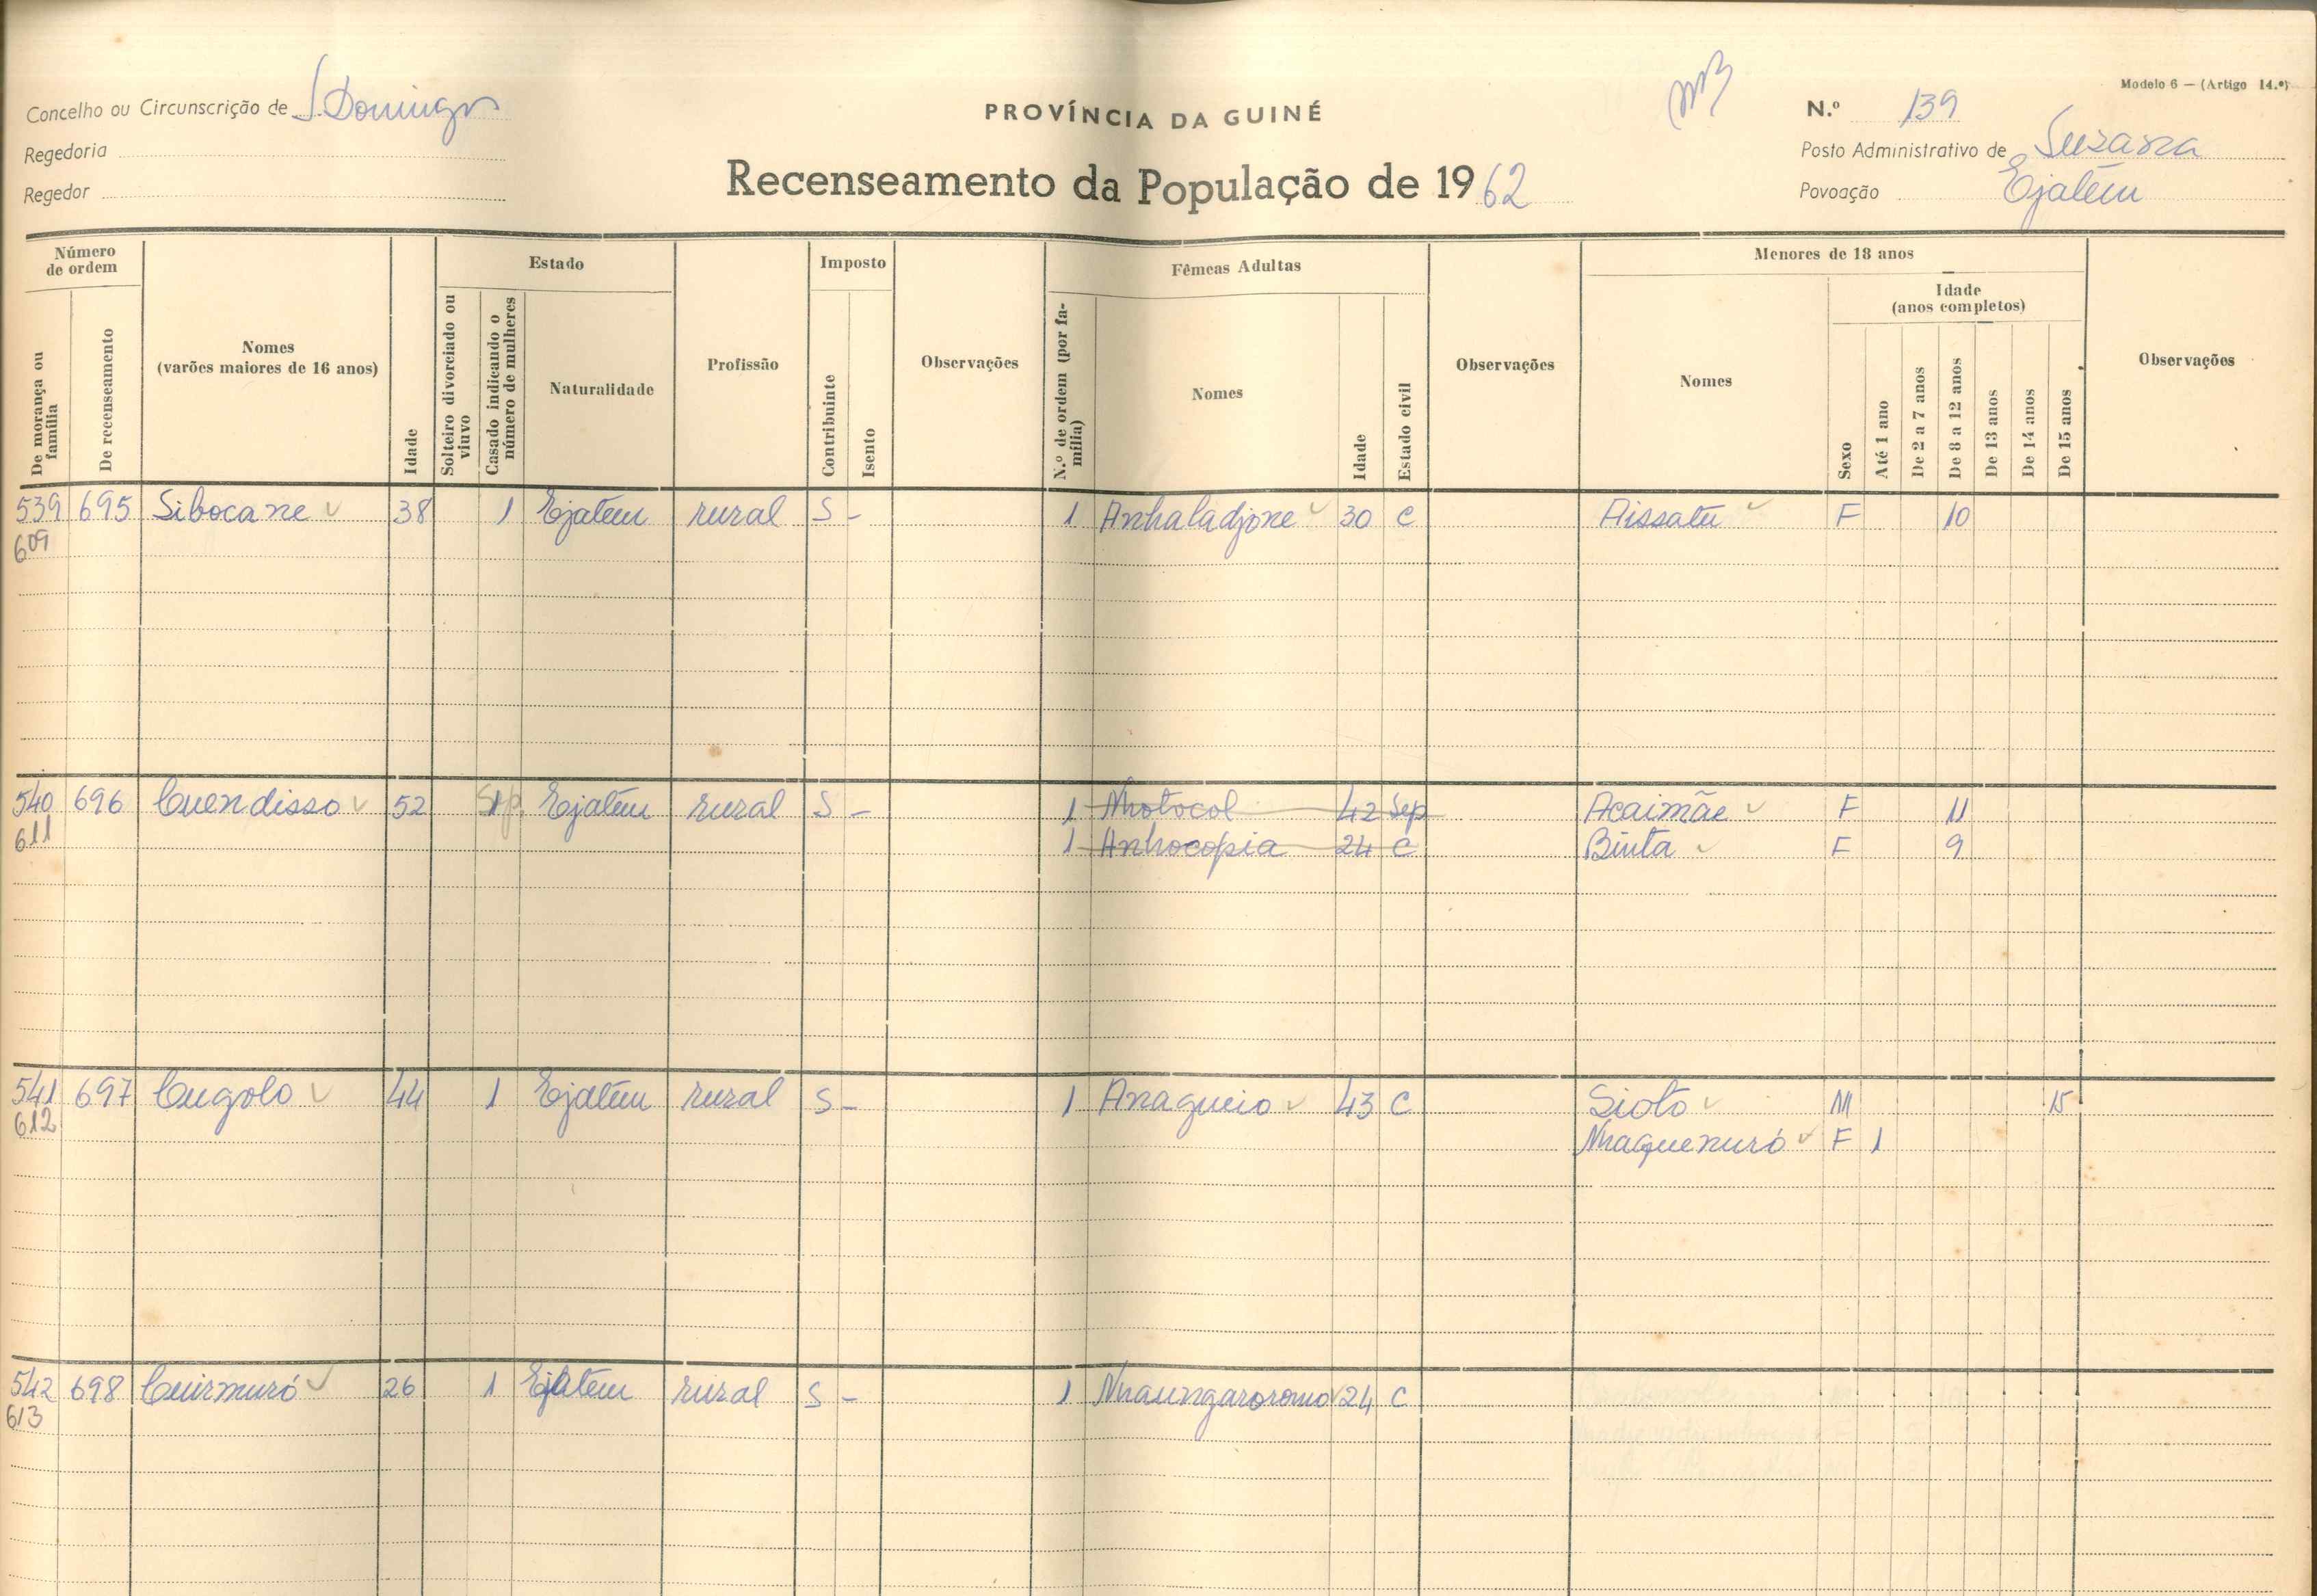 Modelo 6 — (Artigo 14.º)
Concelho ou Circunscrição de S. Domingos
PROVÍNCIA DA GUINÉ
N.º 139
Regedoria
Posto Administrativo de Suzana
Regedor
Recenseamento da População de 1962
Povoação Ejatém
Número de ordem
Estado
Imposto
Fêmeas Adultas
Menores de 18 anos
De morança ou família
De recenseamento
Nomes
(varões maiores de 16 anos)
Idade
Solteiro divorciado ou viuvo
Casado indicando o número de mulheres
Naturalidade
Profissão
Contribuinte
Isento
Observações
N.º de ordem (por família)
Nomes
Idade
Estado civil
Observações
Nomes
Sexo
Idade
(anos completos)
Até 1 ano
De 2 a 7 anos
De 8 a 12 anos
De 13 anos
De 14 anos
De 15 anos
Observações
539 695 Sibocane 38 1 Ejatem rural S - 1 Anhaladjone 30 C Aissatu F 10
609
540 696 Cuendisso 52 1 Ejatém rural S - 1 Nhotocol 42 Sep Acaimãe F 11
611 1 Anhocopia 24 C Binta F 9
541 697 Cugolo 44 1 Ejatém rural S - 1 Anagueio 43 C Sioto M 15
612 Nhaquenuró F 1
542 698 Cuirmuró 26 1 Ejatem rural S - 1 Nhaungaroromo 24 C
613